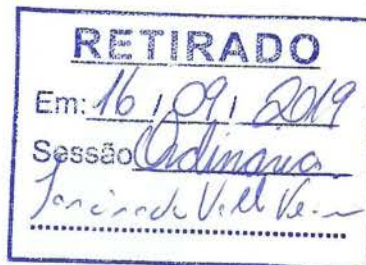 RETIRADO
Em: 16 / 09 / 2019
Sessão Ordinaria